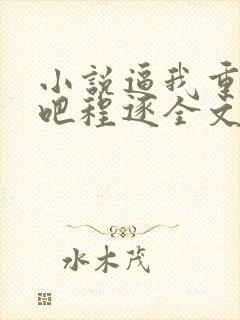 小説逼我重
吧程逐全文
水木茂